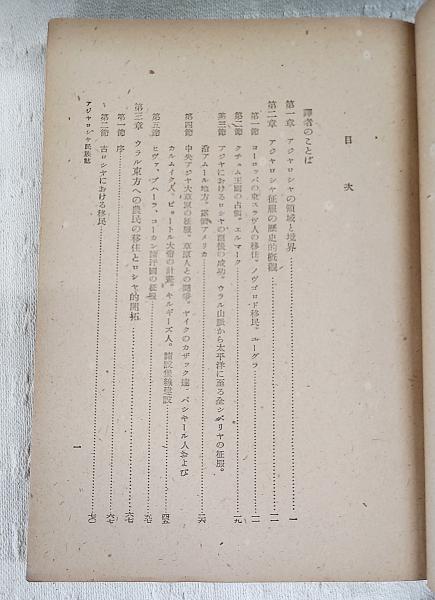 目次
譯者のことば
第一章 アジヤロシヤの領域と境界……一
第二章 アジヤロシヤ征服の歴史的概觀……一一
第一節 ヨーロッパの東スラヴ人の移住。ノヴゴロド移民。ユーグラ……一一
第二節 クチュム王國の占領。エルマーク……一九
第三節 アジヤにおけるロシヤの最後の成功。ウラル山脈から太平洋に至る全シベリヤの征服。
沿アムール地方。露領アメリカ……二六
第四節 中央アジヤ大草原の征服。草原人との鬪爭。ヤイクのカザック達。バシキール人および
カルムイク人。ピョートル大帝の計畫。キルギーズ人。諸設堡線建設……四五
第五節 ヒヴァ、ブハーラ、コーカン諸汗國の征服
第三章 ウラル東方への農民の移住とロシヤ的開拓……六七
第一節 序……六七
第二節 古ロシヤにおける移民……七〇
アジヤロシヤ民族誌
一